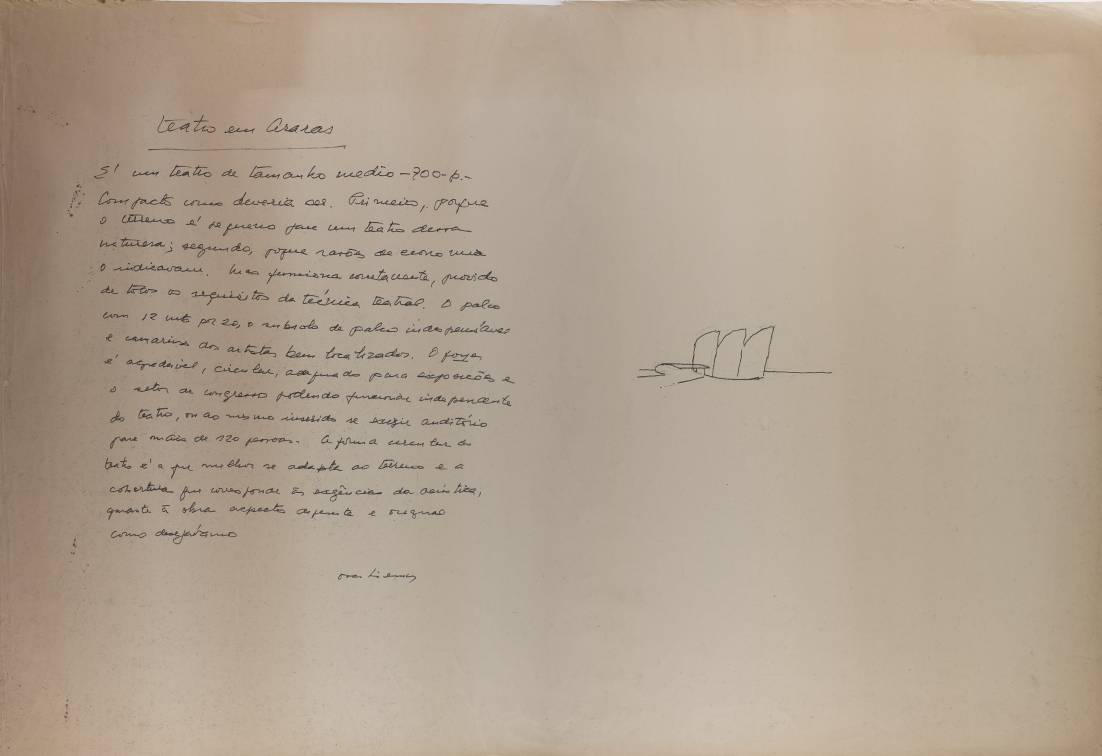 Teatro em Araras
É um teatro de tamanho medio – 700 – p. –
Compacto como deveria ser. Primeiro, porque
o terreno é pequeno para um teatro dessa
natureza; segundo, porque razões de economia
o indicavam. Mas funciona corretamente, provido
de todos os requisitos da técnica teatral. O palco
com 12 mts por 20, o subsolo de palco indispensavel
e camarins dos artistas bem localizados. O foyer
é agradavel, circular, adequado para exposições e
o setor de congresso podendo funcionar independente
do teatro, ou ao mesmo inserido se exigir auditório
para mais de 120 pessoas. A forma circular do
teatro é a que melhor se adapta ao terreno e a
cobertura que corresponde às exigências da acústica,
garante à obra aspecto diferente e original
como desejávamos
Oscar Niemeyer